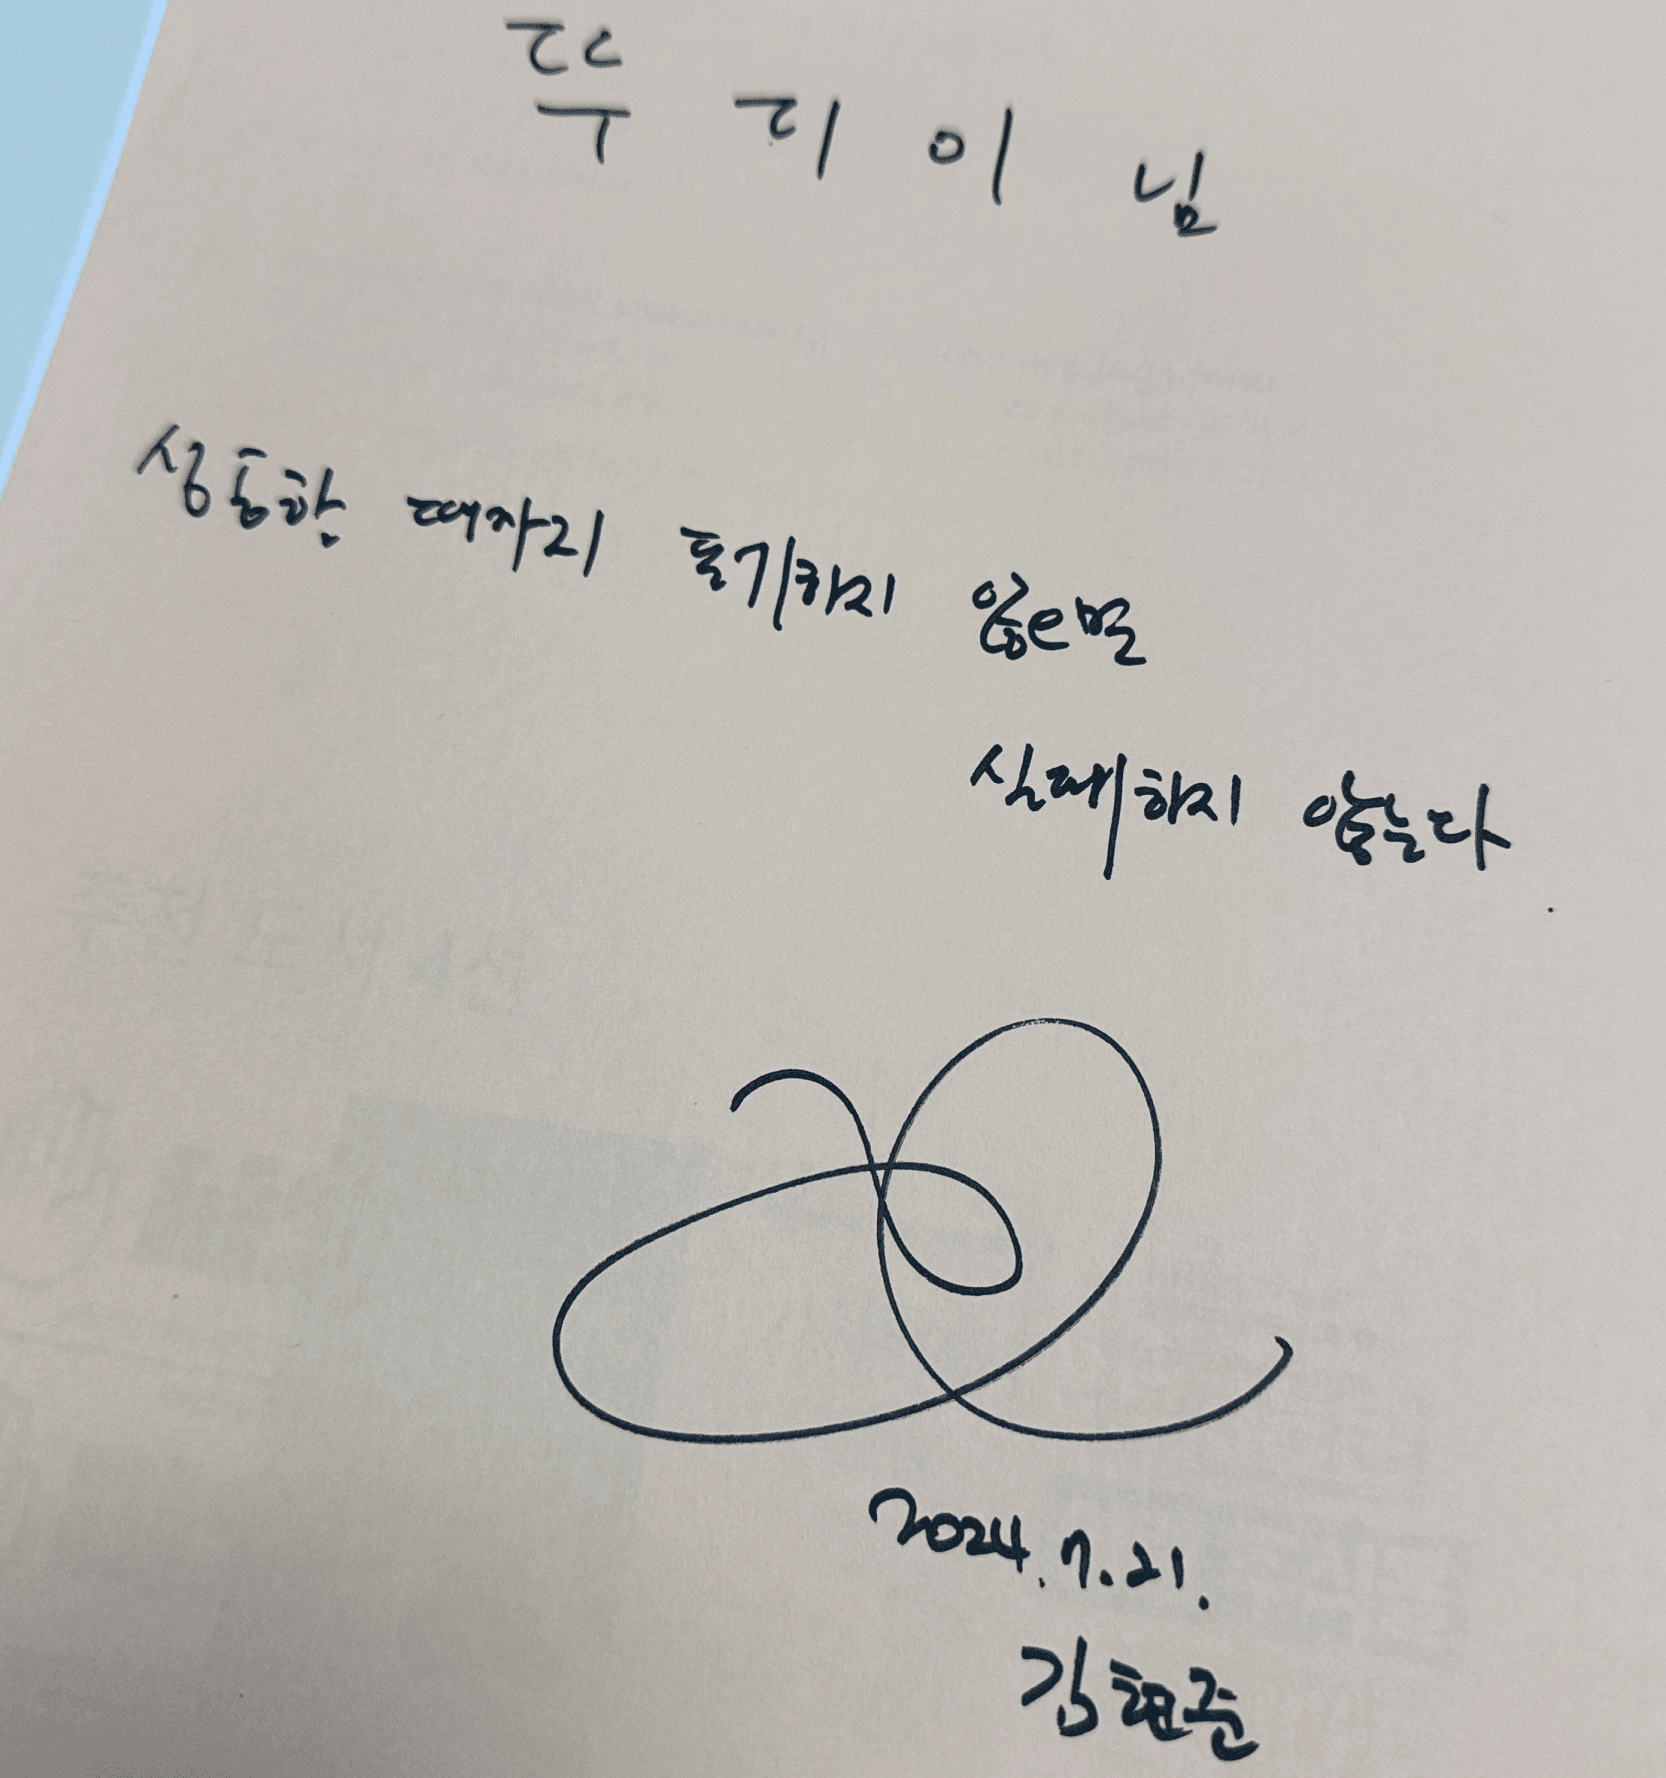 뚜디이 님
성공할 때까지 포기하지 않으면
실패하지 않는다.
2024.7.21.
김현준